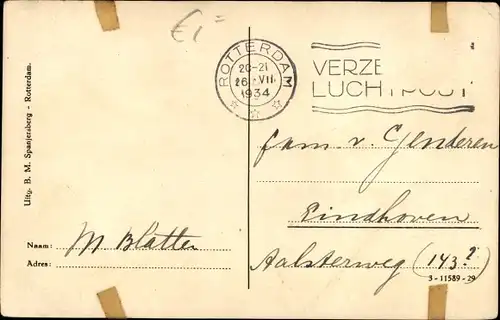 € 1=
ROTTERDAM
20-21
26 VII
1934
VERZE
LUCHTPOST
Uitg. B. M. Spanjersberg - Rotterdam.
fam v. Genderen
Eindhoven
Aalsterweg (143?)
Naam: M Blatter
Adres:
3-11589-29